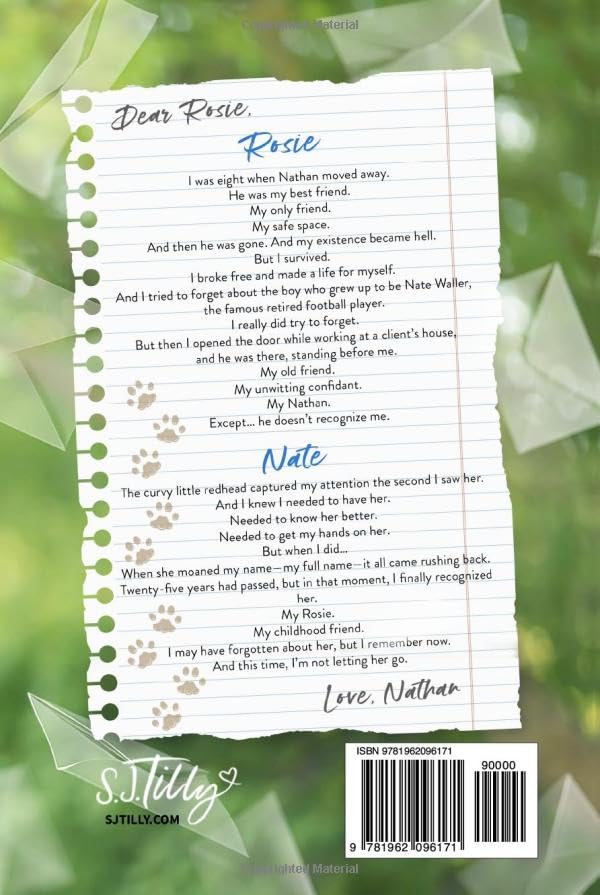 Copyrighted Material
Dear Rosie,
Rosie
I was eight when Nathan moved away.
He was my best friend.
My only friend.
My safe space.
And then he was gone. And my existence became hell.
But I survived.
I broke free and made a life for myself.
And I tried to forget about the boy who grew up to be Nate Waller,
the famous retired football player.
I really did try to forget.
But then I opened the door while working at a client's house,
and he was there, standing before me.
My old friend.
My unwitting confidant.
My Nathan.
Except... he doesn't recognize me.
Nate
The curvy little redhead captured my attention the second I saw her.
And I knew I needed to have her.
Needed to know her better.
Needed to get my hands on her.
But when I did...
When she moaned my name—my full name—it all came rushing back.
Twenty-five years had passed, but in that moment, I finally recognized
her.
My Rosie.
My childhood friend.
I may have forgotten about her, but I remember now.
And this time, I'm not letting her go.
Love, Nathan
S.J. Tilly
SJTILLY.COM
ISBN 9781962096171
90000
9 781962 096171
Copyrighted Material